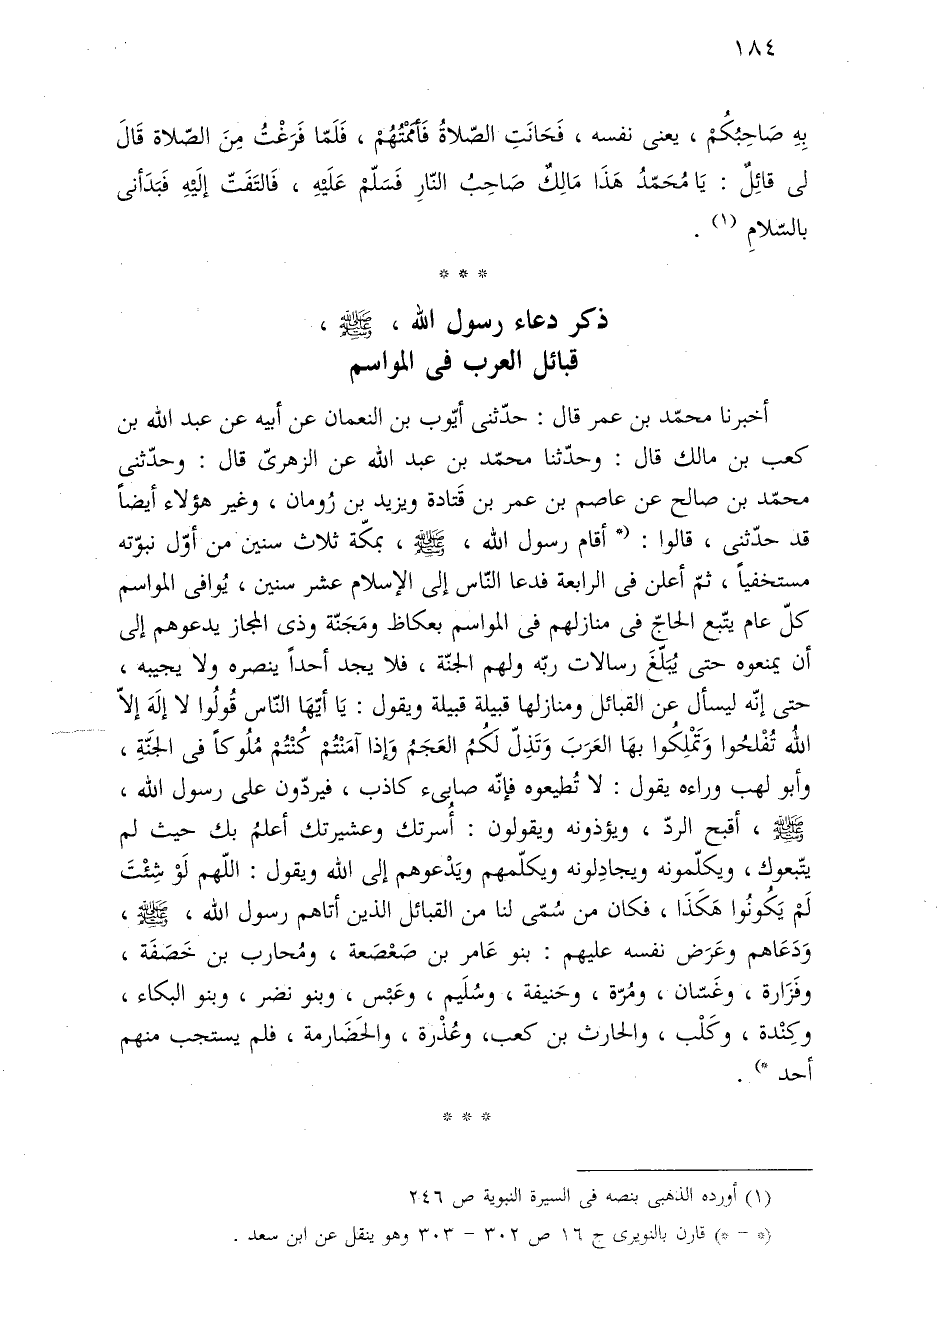 ١٨٤
بِهِ صَاحِبُكُمْ ، يعنى نفسه ، فَحَانَتِ الصّلاةُ فَأَمَمْتُهُمْ ، فَلَمّا فَرَغْتُ مِنَ الصّلاة قَالَ
لى قائِلٌ : يَا مُحَمّدُ هَذَا مَالِكٌ صَاحِبُ النّارِ فَسَلّمْ عَلَيْهِ ، فَالتَفَتّ إلَيْهِ فَبَدَأنى
بالسّلامِ (١) .
* * *
ذكر دعاء رسول الله ، ﷺ ،
قبائل العرب فى المواسم
أخبرنا محمّد بن عمر قال : حدّثنى أيّوب بن النعمان عن أبيه عن عبد الله بن
كعب بن مالك قال : وحدّثنا محمّد بن عبد الله عن الزهرىّ قال : وحدّثنى
محمّد بن صالح عن عاصم بن عمر بن قَتادة ويزيد بن رُومان ، وغير هؤلاء أيضاً
قد حدّثنى ، قالوا : (* أقام رسول الله ، ﷺ ، بمكّة ثلاث سنين من أوّل نبوّته
مستخفياً ، ثمّ أعلن فى الرابعة فدعا النّاس إلى الإسلام عشر سنين ، يُوافى المواسم
كلّ عام يتّبع الحاجّ فى منازلهم فى المواسم بعكاظ ومَجَنّة وذى المجاز يدعوهم إلى
أن يمنعوه حتى يُبَلّغَ رسالات ربّه ولهم الجنّة ، فلا يجد أحداً ينصره ولا يجيبه ،
حتى إنّه ليسأل عن القبائل ومنازلها قبيلة قبيلة ويقول : يَا أيّهَا النّاس قُولُوا لا إلَهَ إلاّ
اللهُ تُفْلحُوا وَتَمْلِكُوا بهَا العَرَبَ وَتَذِلّ لَكُمُ العَجَمُ وَإذا آمَنْتُمْ كُنْتُمْ مُلُوكاً فى الجَنّةِ ،
وأبو لهب وراءه يقول : لا تُطيعوه فإنّه صابىء كاذب ، فيردّون على رسول الله ،
ﷺ ، أقبح الردّ ، ويؤذونه ويقولون : أُسرتك وعشيرتك أعلمُ بك حيث لم
يتّبعوك ، ويكلّمونه ويجادلونه ويكلّمهم ويَدْعوهم إلى الله ويقول : اللّهم لَوْ شِئْتَ
لَمْ يَكُونُوا هَكَذَا ، فكان من سُمّى لنا من القبائل الذين أتاهم رسول الله ، ﷺ ،
وَدَعَاهم وعَرَض نفسه عليهم : بنو عامر بن صَعْصَعة ، ومُحارب بن خَصَفَة ،
وفَزَارة ، وغَسّان ، ومُرّة ، وحَنيفة ، وسُلَيم ، وعَبْس ، وبنو نضر ، وبنو البكاء ،
وكِنْدة ، وكَلْب ، والحارث بن كعب، وعُذْرة ، والحَضَارمة ، فلم يستجب منهم
أحد *) .
* * *
(١) أورده الذهبى بنصه فى السيرة النبوية ص ٢٤٦
(* – *) قارن بالنويرى ج ١٦ ص ٣٠٢ – ٣٠٣ وهو ينقل عن ابن سعد .